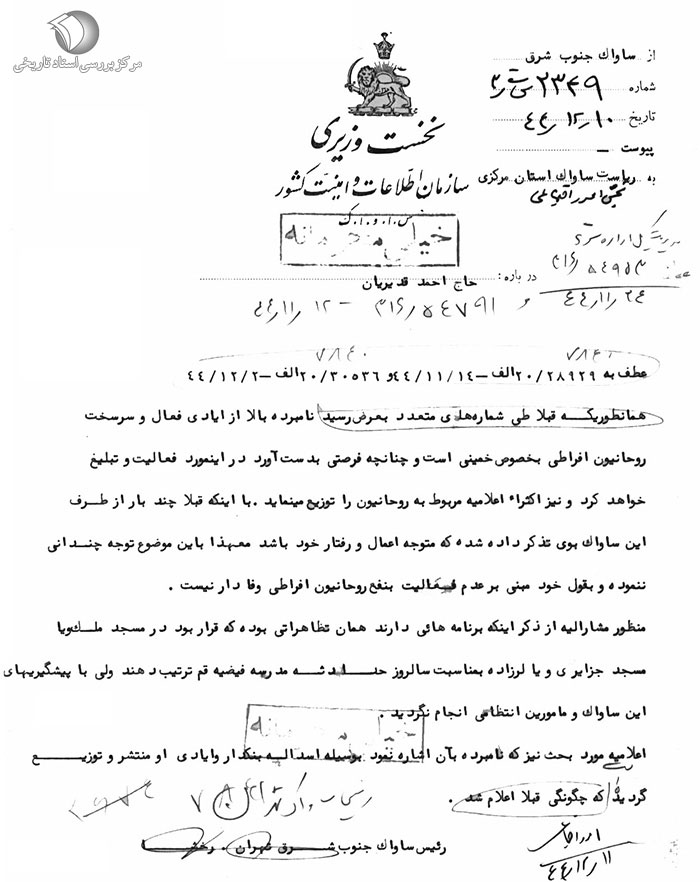 مرکز بررسی اسناد تاریخی
از ساواك جنوب شرق
شماره ۲۳۴۹
تاریخ ۴۴/۱۲/۱۰
پیوست -
به ریاست ساواك استان مرکزی
نخست وزیری
سازمان اطلاعات و امنیت کشور
س.ا.و.ا.ك
خیلی محرمانه
در باره : حاج احمد قدیریان
عطف به ۲۰/۲۸۹۲۹الف-۴۴/۱۱/۱۴و ۲۰/۳۰۵۳۶الف-۴۴/۱۲/۲
همانطوریکه قبلا طی شماره‌های متعدد بعرض رسید نامبرده بالا از ایادی فعال و سرسخت
روحانیون افراطی بخصوص خمینی است و چنانچه فرصتی بدست آورد در اینمورد فعالیت و تبلیغ
خواهد کرد و نیز اکثراء اعلامیه مربوط به روحانیون را توزیع مینماید . با اینکه قبلا چند بار از طرف
این ساواك بوی تذکر داده شده که متوجه اعمال و رفتار خود باشد معهذا باین موضوع توجه چندانی
ننموده و بقول خود مبنی بر عدم فعالیت بنفع روحانیون افراطی وفا دار نیست .
منظور مشارالیه از ذکر اینکه برنامه هائی دارند همان تظاهراتی بوده که قرار بود در مسجد ملك ویا
مسجد جزایری و یا لرزاده بمناسبت سالروز حادثه مدرسه فیضیه قم ترتیب دهند ولی با پیشگیریهای
این ساواك و مامورین انتظامی انجام نگردید .
خیلی محرمانه
اعلامیه مورد بحث نیز که نامبرده بآن اشاره نمود بوسیله اسداله بنکدار وایادی او منتشر و توزیع
گردید که چگونگی قبلا اعلام شد .
رئیس ساواك جنوب شرق تهران .
۴۴/۱۲/۱۱